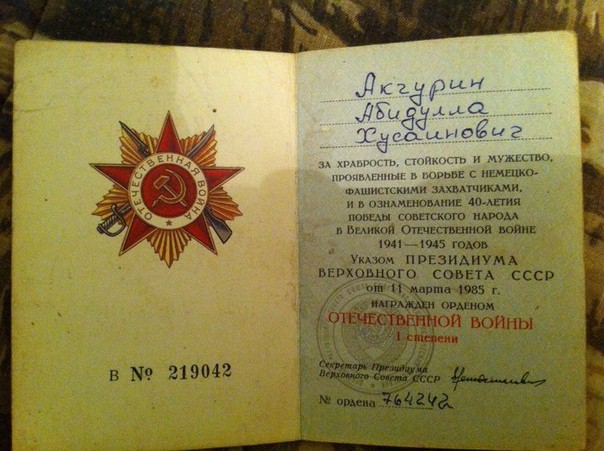 ОТЕЧЕСТВЕННАЯ ВОЙНА
В № 219042
Акчурин
Абидулла
Хусаинович
ЗА ХРАБРОСТЬ, СТОЙКОСТЬ И МУЖЕСТВО,
ПРОЯВЛЕННЫЕ В БОРЬБЕ С НЕМЕЦКО-
ФАШИСТСКИМИ ЗАХВАТЧИКАМИ,
И В ОЗНАМЕНОВАНИЕ 40-ЛЕТИЯ
ПОБЕДЫ СОВЕТСКОГО НАРОДА
В ВЕЛИКОЙ ОТЕЧЕСТВЕННОЙ ВОЙНЕ
1941—1945 ГОДОВ
УКАЗОМ ПРЕЗИДИУМА
ВЕРХОВНОГО СОВЕТА СССР
от 11 марта 1985 г.
НАГРАЖДЕН ОРДЕНОМ
ОТЕЧЕСТВЕННОЙ ВОЙНЫ
I степени
Секретарь Президиума
Верховного Совета СССР
№ ордена 764242